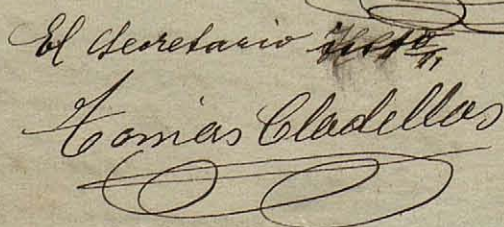 El Secretario
Tomás Cladellas